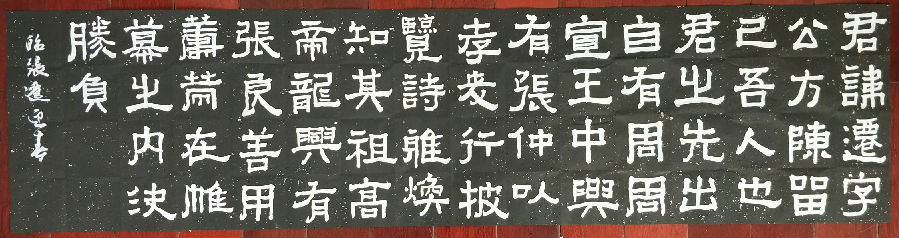 君諱遷字
公方陳留
己吾人也
君之先出
自有周周
宣王中興
有張仲以
孝友行披
覽詩雅煥
知其祖高
帝龍興有
張良善用
籌策在帷
幕之內決
勝負
臨張遷